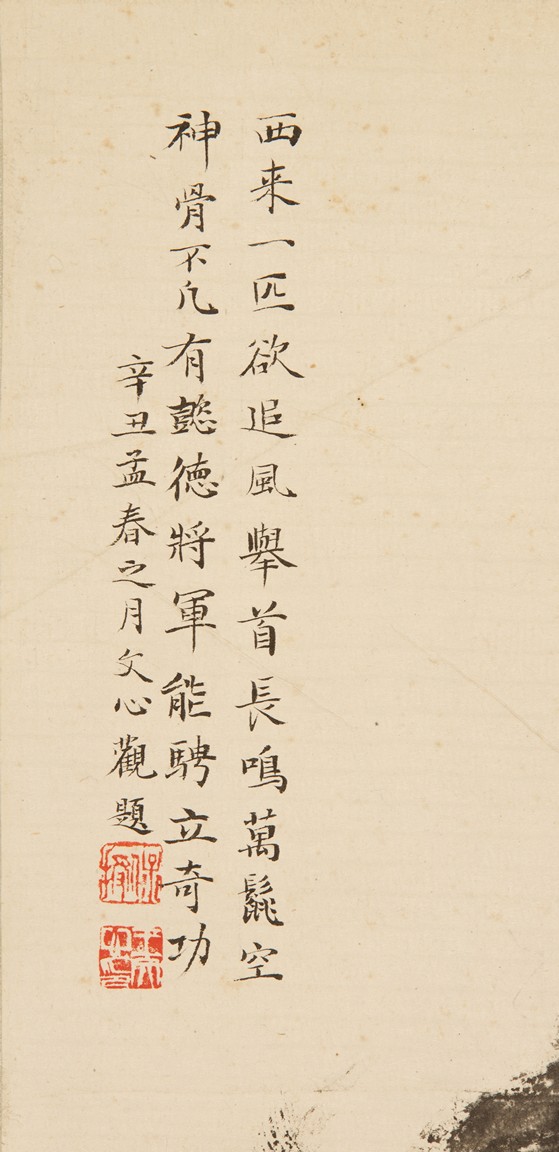 西来一匹欲追風舉首長鳴萬鬣空
神骨不凡有懿德將軍能騁立奇功
辛丑孟春之月文心觀題